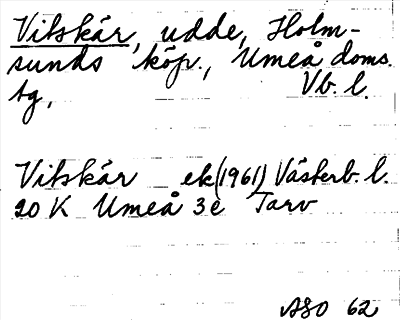 Vitskär, udde, Holm-
sunds köp., Umeå doms.
tg, Vb. l.
Vitskär ek (1961) Västerb. l.
20 K Umeå 3e Tarv
ASO 62